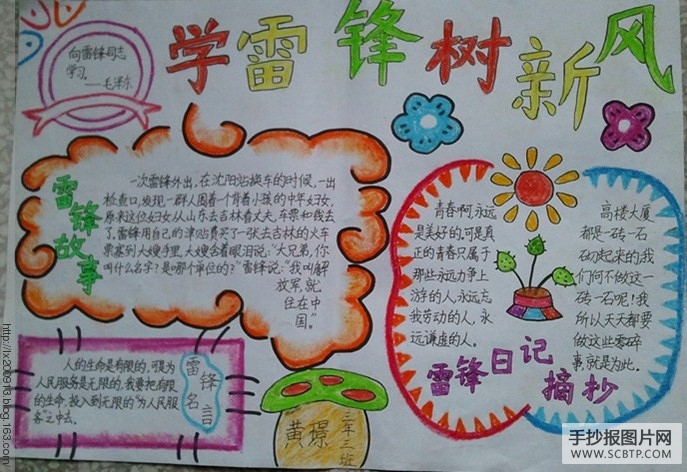 学雷锋树新风
向雷锋同志
学习。
——毛泽东
雷锋故事
一次雷锋外出,在沈阳站换车的时候,一出
检查口,发现一群人围着一个背着小孩的中年妇女,
原来这位妇女从山东去吉林看丈夫,车票和钱丢
了。雷锋用自己的津贴费买了一张去吉林的火车
票塞到大嫂手里,大嫂含着眼泪说:“大兄弟,你
叫什么名字?是哪个单位的?”雷锋说:“我叫解
放军,就
住在中
国。”
青春啊,永远
是美好的,可是真
正的青春只属于
那些永远力争上
游的人,永远忘
我劳动的人,永
远谦虚的人。
高楼大厦
都是一砖一石
砌起来的,我
们何不做这一
砖一石呢!我
所以天天都要
做这些零碎
事,就是为此。
雷锋日记
摘抄
人的生命是有限的,可是为
人民服务是无限的,我要把有限
的生命,投入到无限的“为人民服
务”之中去。
雷锋名言
黄璟
三年三班
http://lx200913.blog.163.com
手抄报图片网
WWW.SCBTP.COM